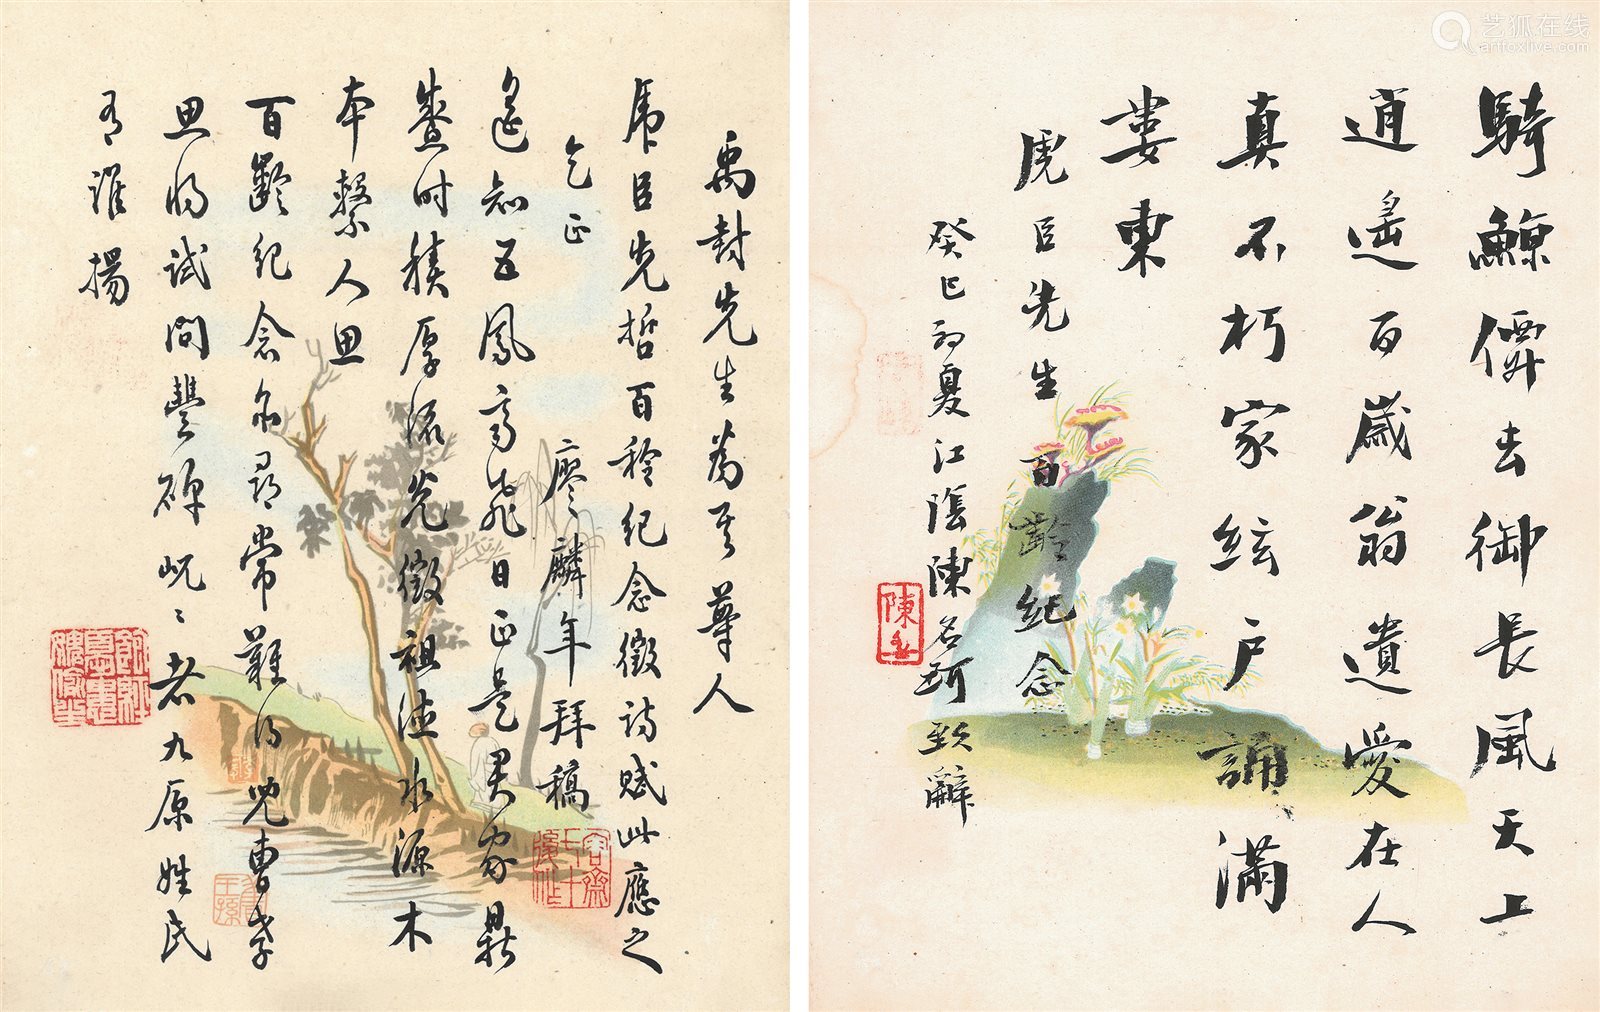 騎鯨僊去御長風天上
逍遙百歲翁遺愛在人
真不朽家絃戶誦滿
婁東
虎臣先生百齡紀念
癸巳初夏江陰陳名珂致辭
陳
禹封先生為其尊人
虎臣先哲百稔紀念徵詩賦此應之
乞正 廖麟年拜稿
遙知五鳳高飛日正是君家鼎
盛時積厚流光徵祖德水源木
本繫人思
百齡紀念亦尋常難得兒曹孝
思將試問豐碑屹屹者九原姓氏
有誰揚
容齋七十後作
艺狐在线
artfoxlive.com